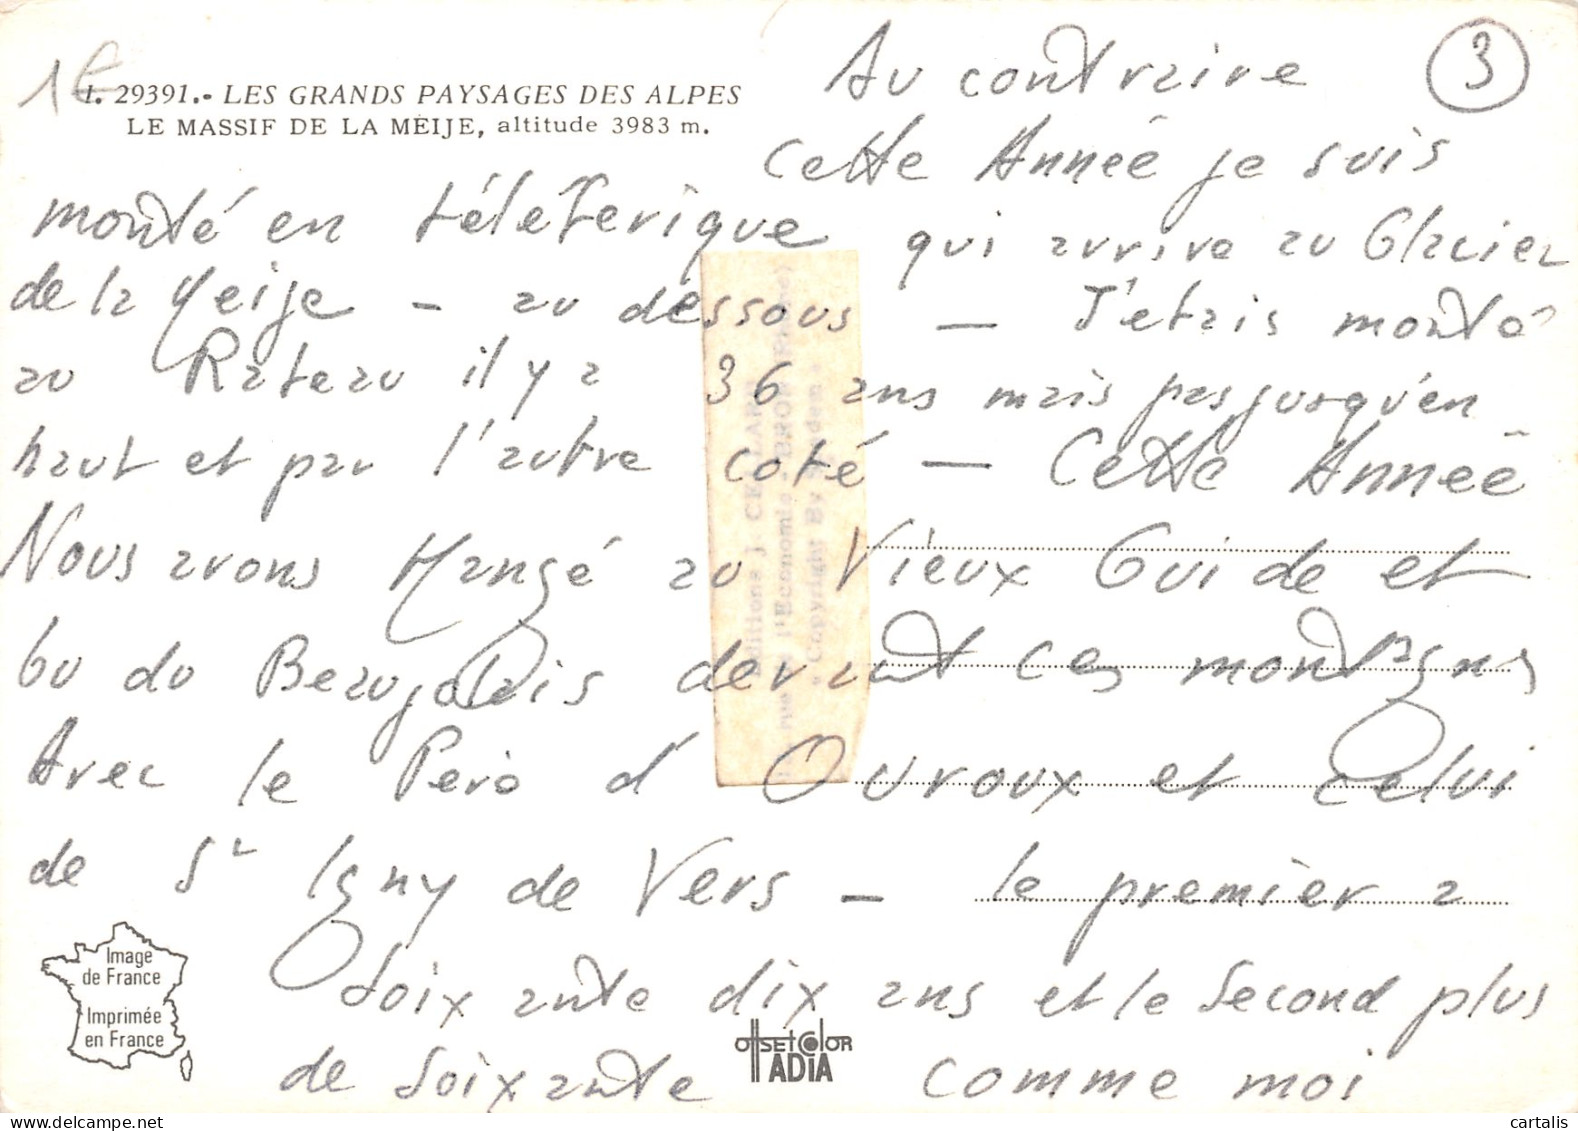 1€
1. 29391.- LES GRANDS PAYSAGES DES ALPES
LE MASSIF DE LA MEIJE, altitude 3983 m.
3
Au contraire
cette Année je suis
monté en téléferique qui arrive au Glacier
de la Meije - au dessous - J'etais monté
au Rateau il y a 36 ans mais pas jusqu'en
haut et par l'autre coté - Cette Année
Nous avons Mangé au Vieux Guide et
bu du Beaujolais devant ces montagnes
Avec le Père d'Ouroux et celui
de St Igny de Vers - le premier a
Soixante dix ans et le Second plus
de Soixante comme moi
Editions J. CELLARD
l'Economie BRON
Copyright By
Image
de France
Imprimée
en France
OffSET COLOR
IADIA
cartalis.com